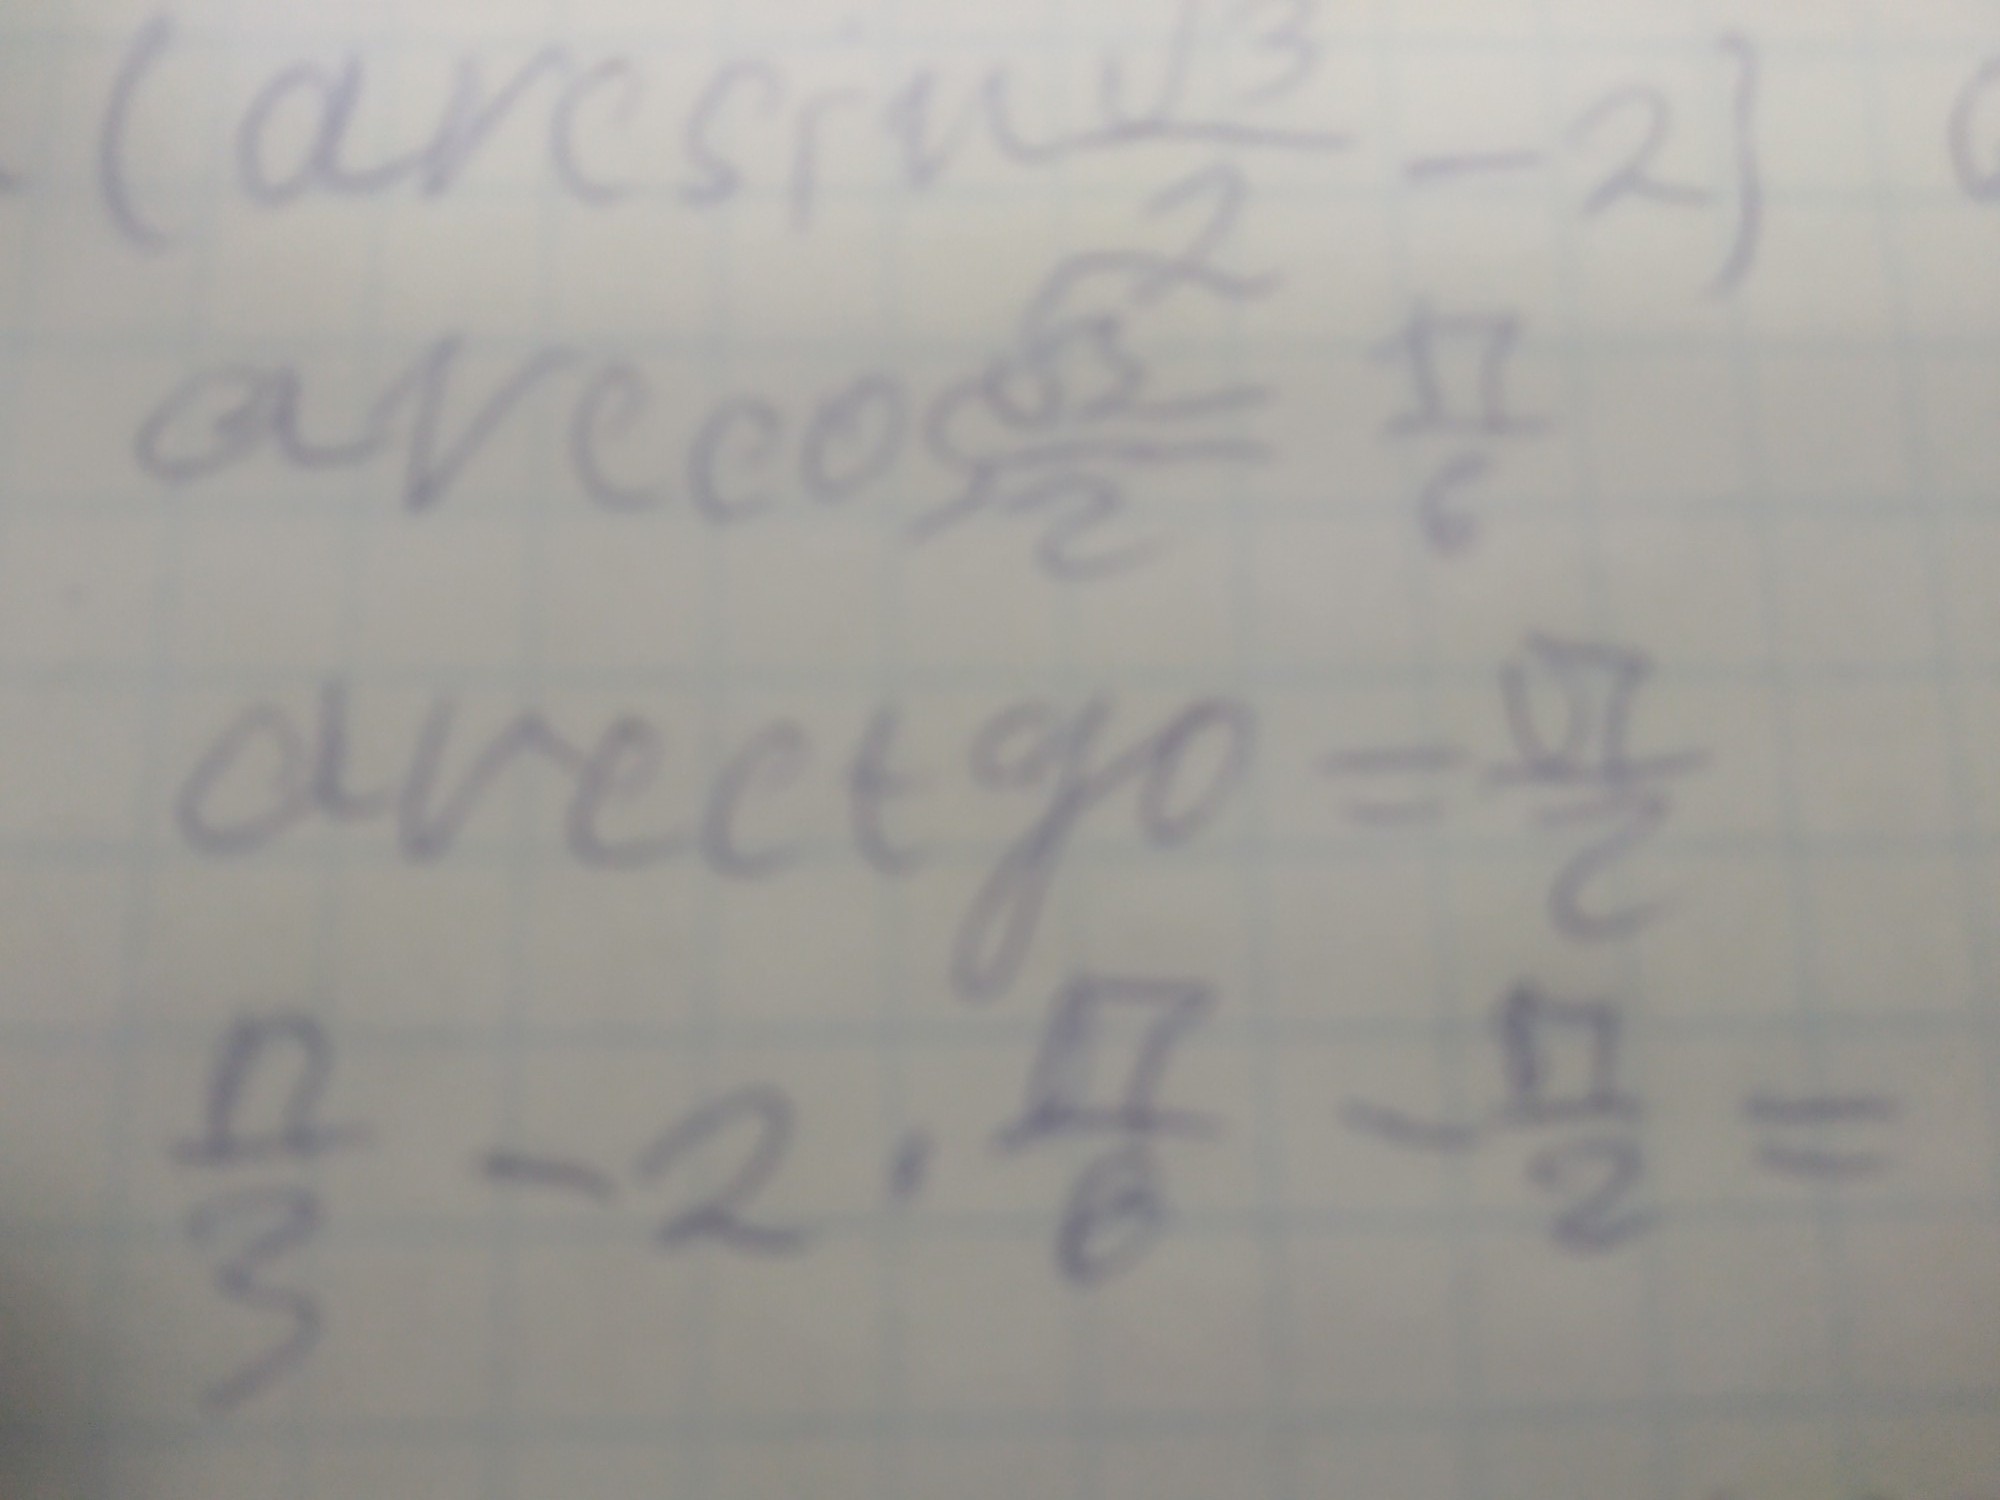 (arcsin √3/2 - 2)
arccos √3/2 = π/6
arcctg0 = π/2
π/3 - 2 · π/6 - π/2 =